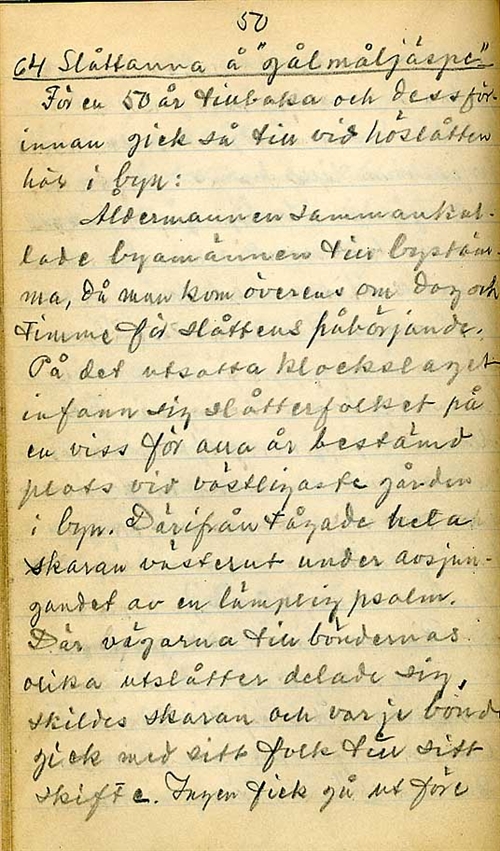 50
64 Slåttanna å "gålmåljäspe"
För en 50 år tillbaka och dessför-
innan gick så till vid höslåtten
här i byn:
Åldermannen sammankal-
lade byamännen till bystäm-
ma, då man kom överens om dag och
timme för slåttens påbörjande.
På det utsatta klockslaget
infann sig slåtterfolket på
en viss för alla år bestämd
plats vid västligaste gården
i byn. Därifrån tågade hela
skaran västerut under avsjun-
gandet av en lämplig psalm.
Där vägarna till böndernas
olika utslåtter delade sig,
skildes skaran och varje bonde
gick med sitt folk till sitt
skifte. Ingen fick gå ut före